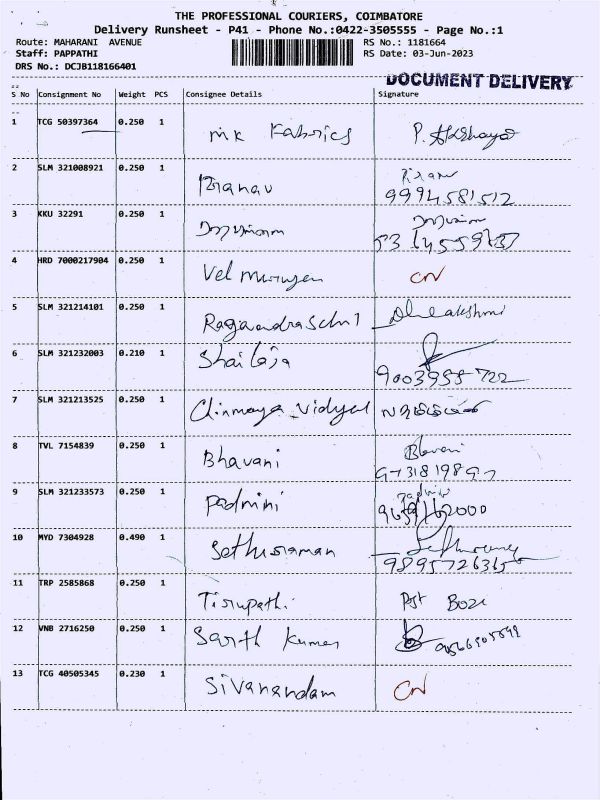 THE PROFESSIONAL COURIERS, COIMBATORE
Delivery Runsheet - P41 - Phone No.:0422-3505555 - Page No.:1
Route: MAHARANI AVENUE RS No.: 1181664
Staff: PAPPATHI RS Date: 03-Jun-2023
DRS No.: DCJB118166401
DOCUMENT DELIVERY
S No Consignment No Weight PCS Consignee Details Signature
1 TCG 50397364 0.250 1 mk Fabrics P.
2 SLM 321008921 0.250 1 Pranav
9994581512
3 KKU 32291 0.250 1
4 HRD 7000217904 0.250 1 Vel Murugan CN
5 SLM 321214101 0.250 1
6 SLM 321232003 0.210 1 Shailaja
9003955722
7 SLM 321213525 0.250 1 Chinmaya Vidyal
8 TVL 7154839 0.250 1 Bhavani Bhavani
9 SLM 321233573 0.250 1 Padmini Padmini
10 MYD 7304928 0.490 1 Sethuraman
11 TRP 2585868 0.250 1 Tirupathi Pst Box
12 VNB 2716250 0.250 1 Sarth Kumar
13 TCG 40505345 0.230 1 Sivanandam CN